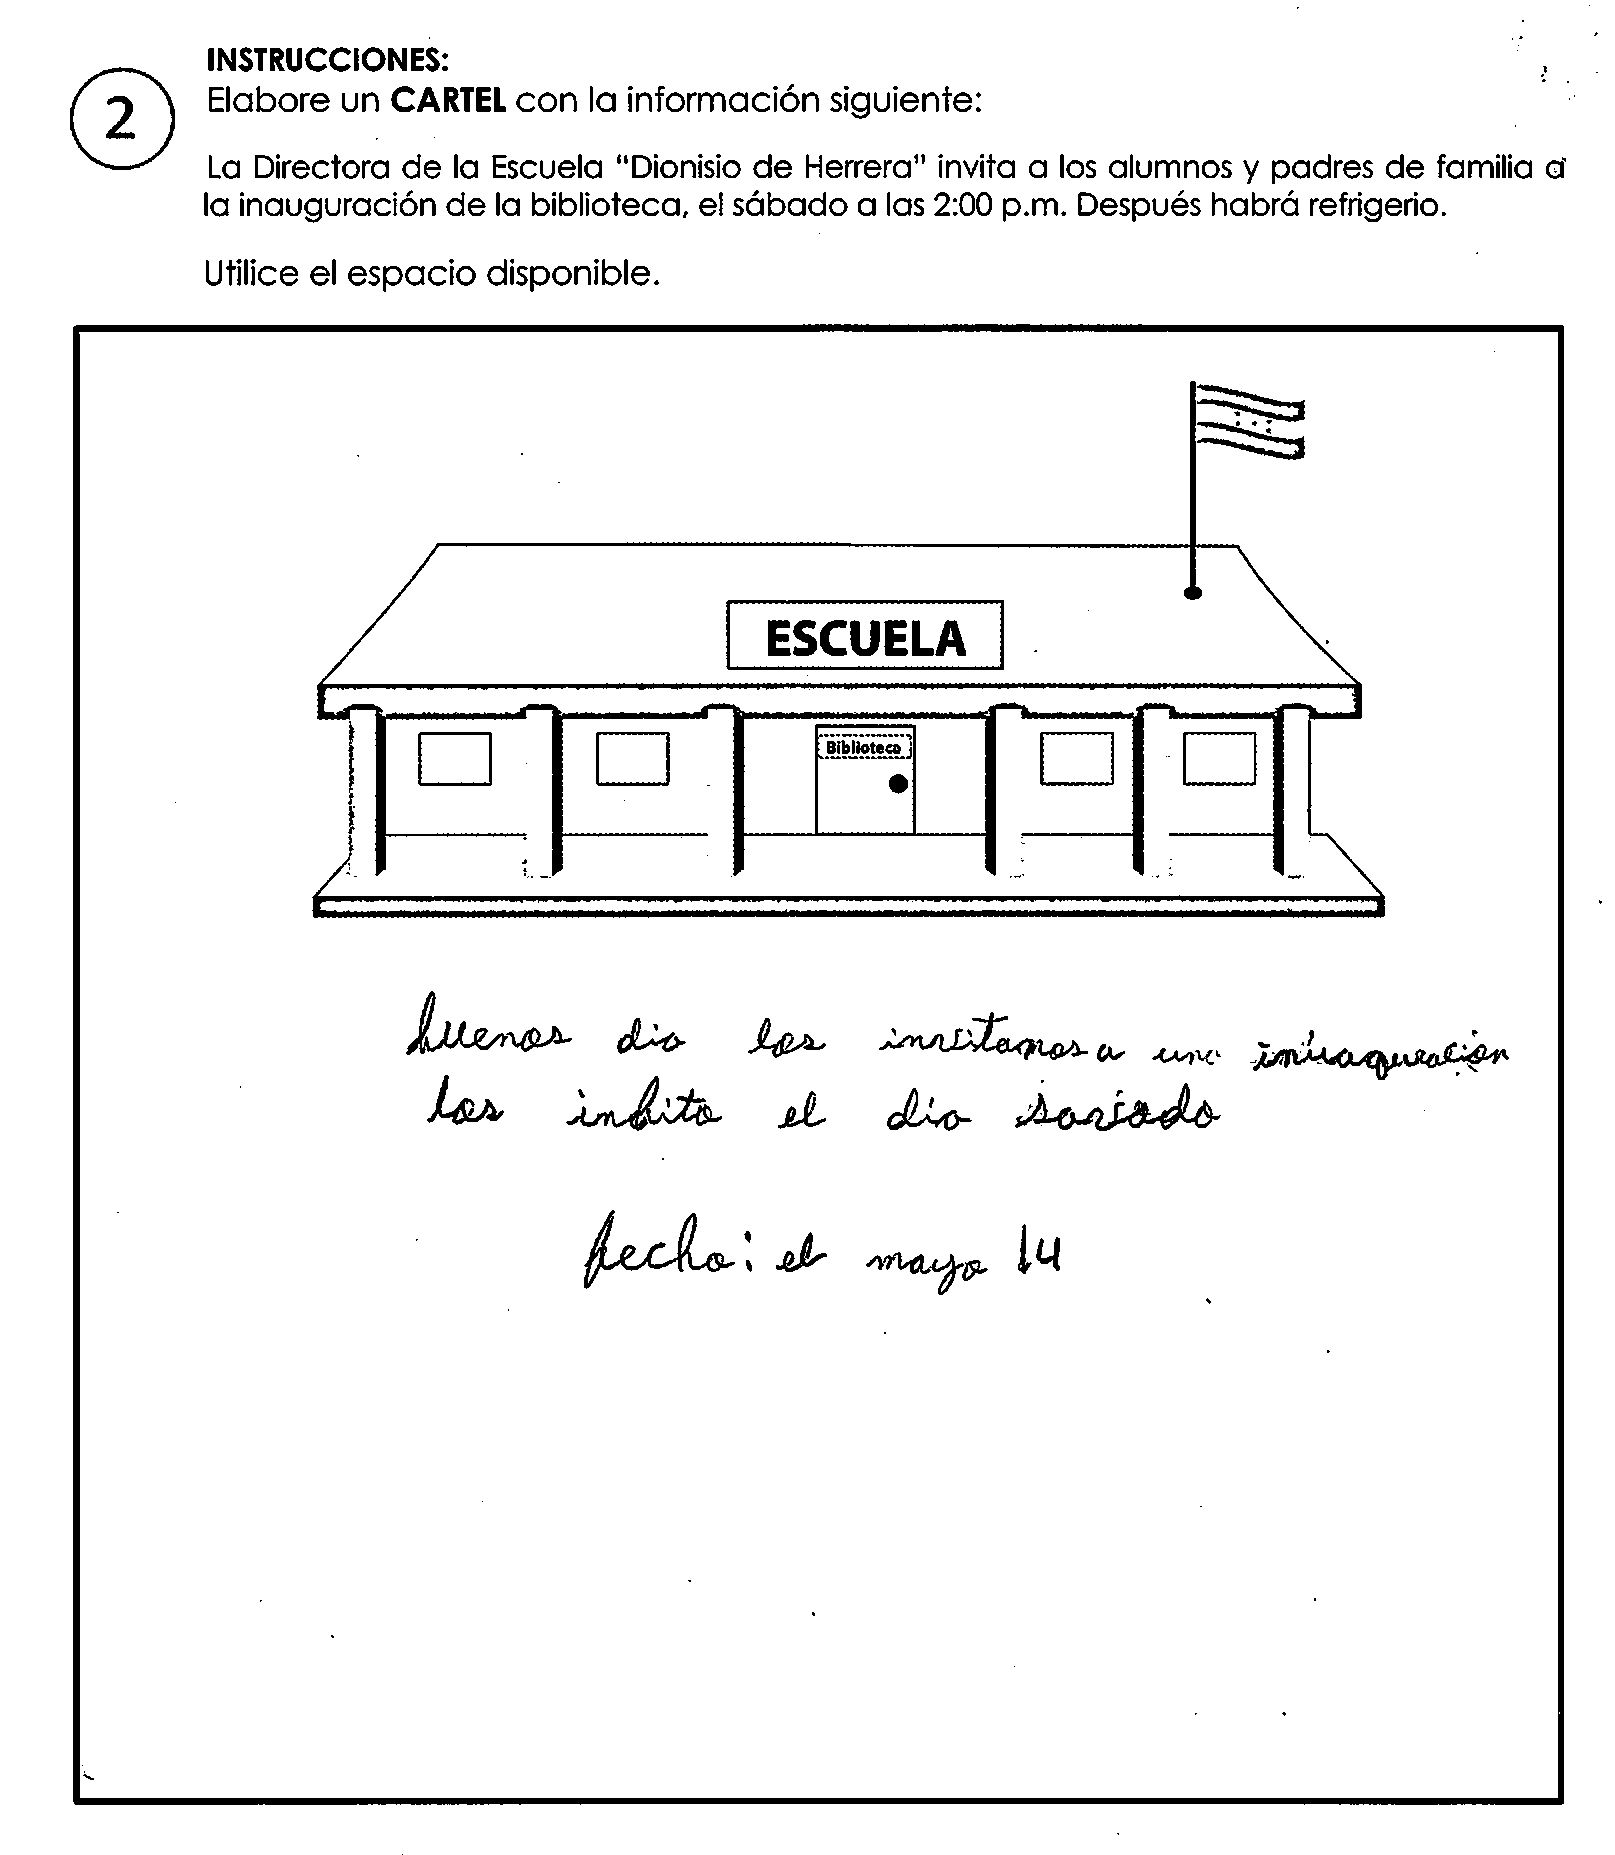 INSTRUCCIONES:
2
Elabore un CARTEL con la información siguiente:
La Directora de la Escuela "Dionisio de Herrera" invita a los alumnos y padres de familia a
la inauguración de la biblioteca, el sábado a las 2:00 p.m. Después habrá refrigerio.
Utilice el espacio disponible.
ESCUELA
Biblioteca
buenos dia los invitamos a una
los inbito el dia
fecha: el mayo 14